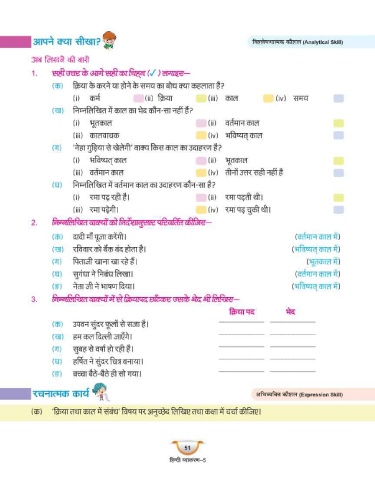 आपने क्या सीखा?
विश्लेषणात्मक कौशल (Analytical Skill)
अब लिखने की बारी
1. सही उत्तर के आगे सही का चिह्न (✓) लगाइए—
(क) क्रिया के करने या होने के समय का बोध क्या कहलाता है?
(i) कर्म (ii) क्रिया (iii) काल (iv) समय
(ख) निम्नलिखित में काल का भेद कौन-सा नहीं है?
(i) भूतकाल (ii) वर्तमान काल
(iii) कालवाचक (iv) भविष्यत् काल
(ग) 'नेहा गुड़िया से खेलेगी' वाक्य किस काल का उदाहरण है?
(i) भविष्यत् काल (ii) भूतकाल
(iii) वर्तमान काल (iv) तीनों उत्तर सही नहीं हैं
(घ) निम्नलिखित में वर्तमान काल का उदाहरण कौन-सा है?
(i) रमा पढ़ रही है। (ii) रमा पढ़ती थी।
(iii) रमा पढ़ेगी। (iv) रमा पढ़ चुकी थी।
2. निम्नलिखित वाक्यों को निर्देशानुसार परिवर्तित कीजिए—
(क) दादी माँ पूजा करेंगी। (वर्तमान काल में)
(ख) रविवार को बैंक बंद होता है। (भविष्यत् काल में)
(ग) पिताजी खाना खा रहे हैं। (भूतकाल में)
(घ) सुगंधा ने निबंध लिखा। (वर्तमान काल में)
(ङ) नेता जी ने भाषण दिया। (भविष्यत् काल में)
3. निम्नलिखित वाक्यों में से क्रियापद छाँटकर उसके भेद भी लिखिए—
क्रिया पद भेद
(क) उपवन सुंदर फूलों से सजा है।
(ख) हम कल दिल्ली जाएँगे।
(ग) सुबह से वर्षा हो रही है।
(घ) हर्षित ने सुंदर चित्र बनाया।
(ङ) बच्चा बैठे-बैठे ही सो गया।
रचनात्मक कार्य
अभिव्यक्ति कौशल (Expression Skill)
(क) 'क्रिया तथा काल में संबंध' विषय पर अनुच्छेद लिखिए तथा कक्षा में चर्चा कीजिए।
51
हिन्दी व्याकरण-5